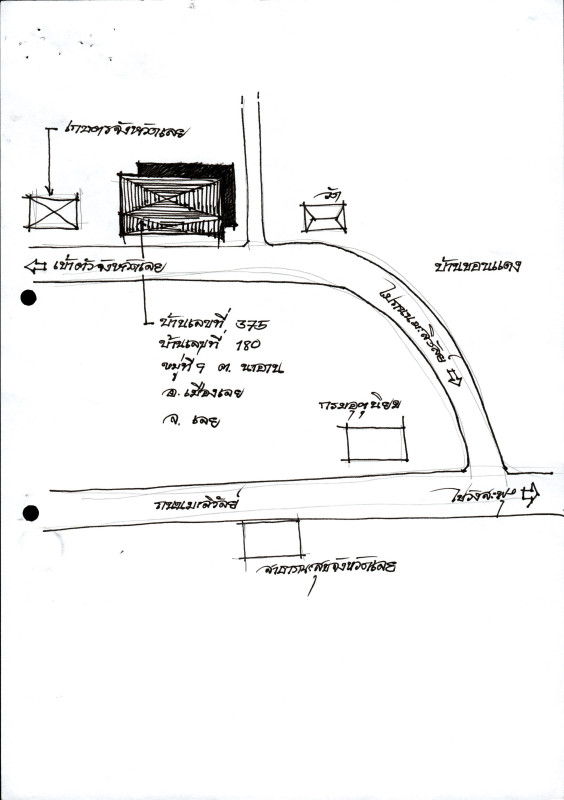 เกษตรจังหวัดเลย
วัด
เข้าตัวจังหวัดเลย
บ้านขอนแดง
ไปถนนมะลิวัลย์
บ้านเลขที่ 375
บ้านเลขที่ 180
หมู่ที่ 9 ต. นาอาน
อ. เมืองเลย
จ. เลย
กรมอุตุนิยม
ถนนมะลิวัลย์
ไปวังสะพุง
สาธารณะสุขจังหวัดเลย